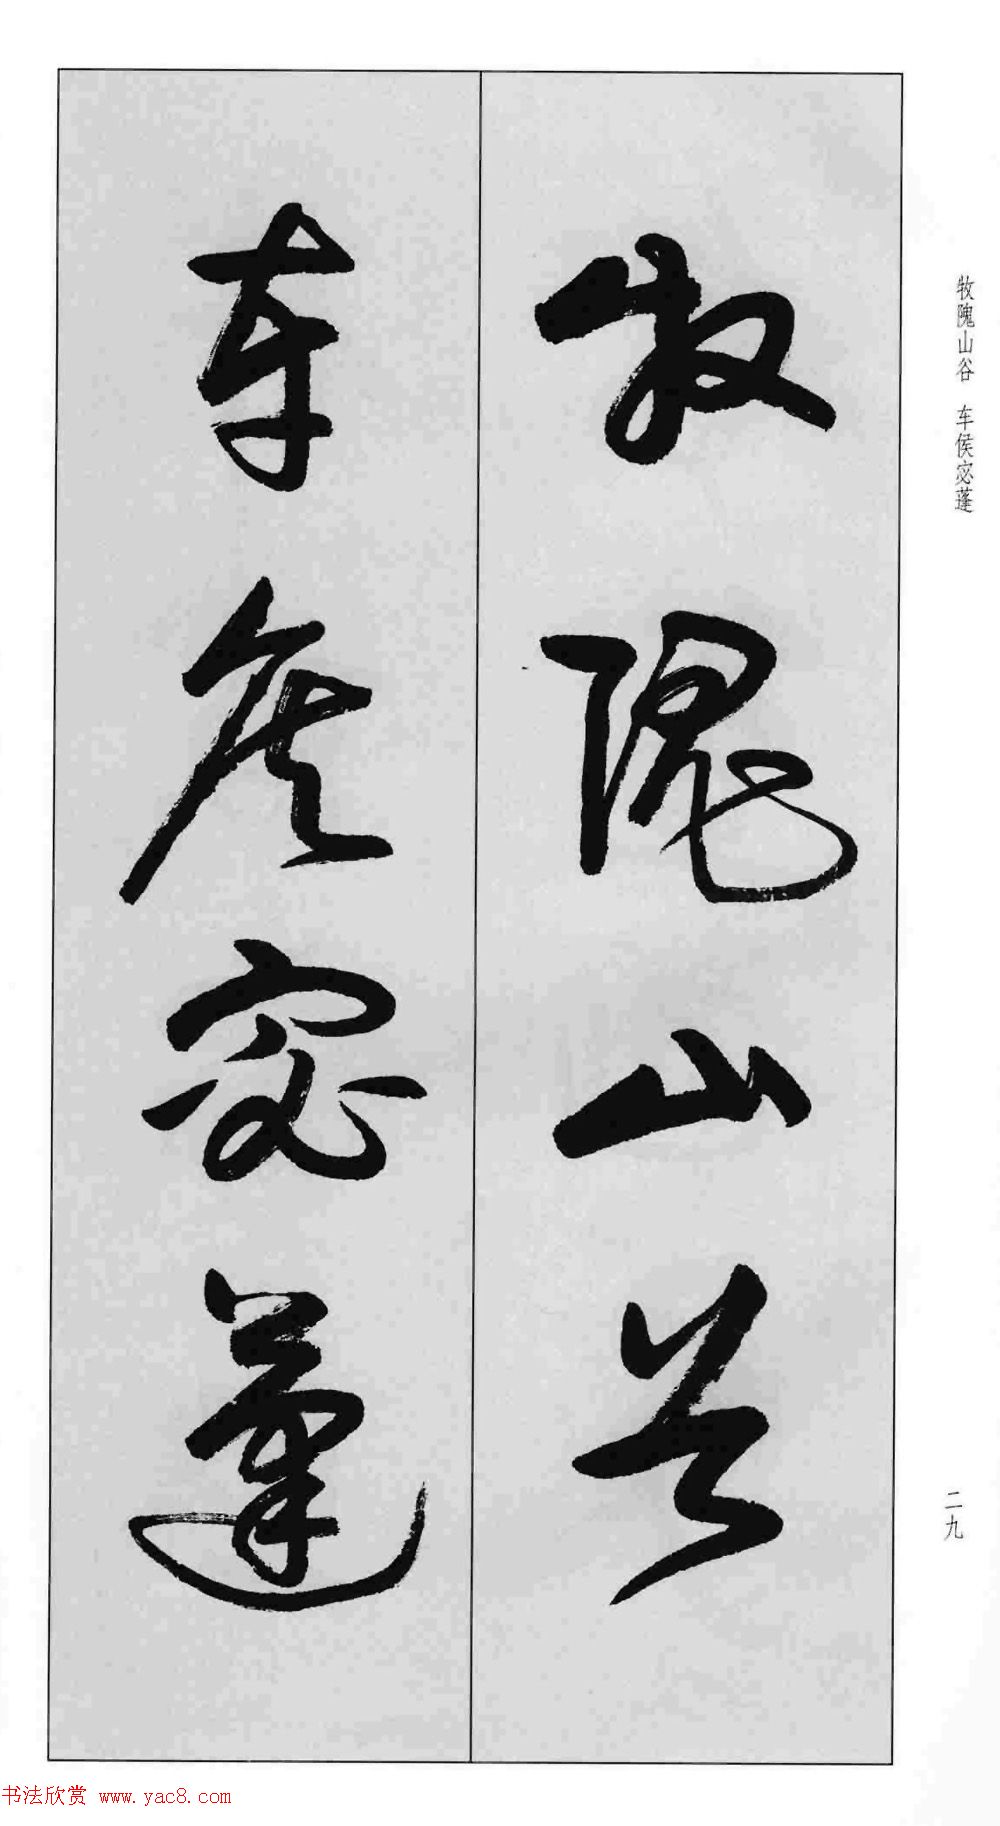 牧隗山谷 车侯宓蓬
牧隗山谷
车侯宓蓬
二九
书法欣赏 www.yac8.com